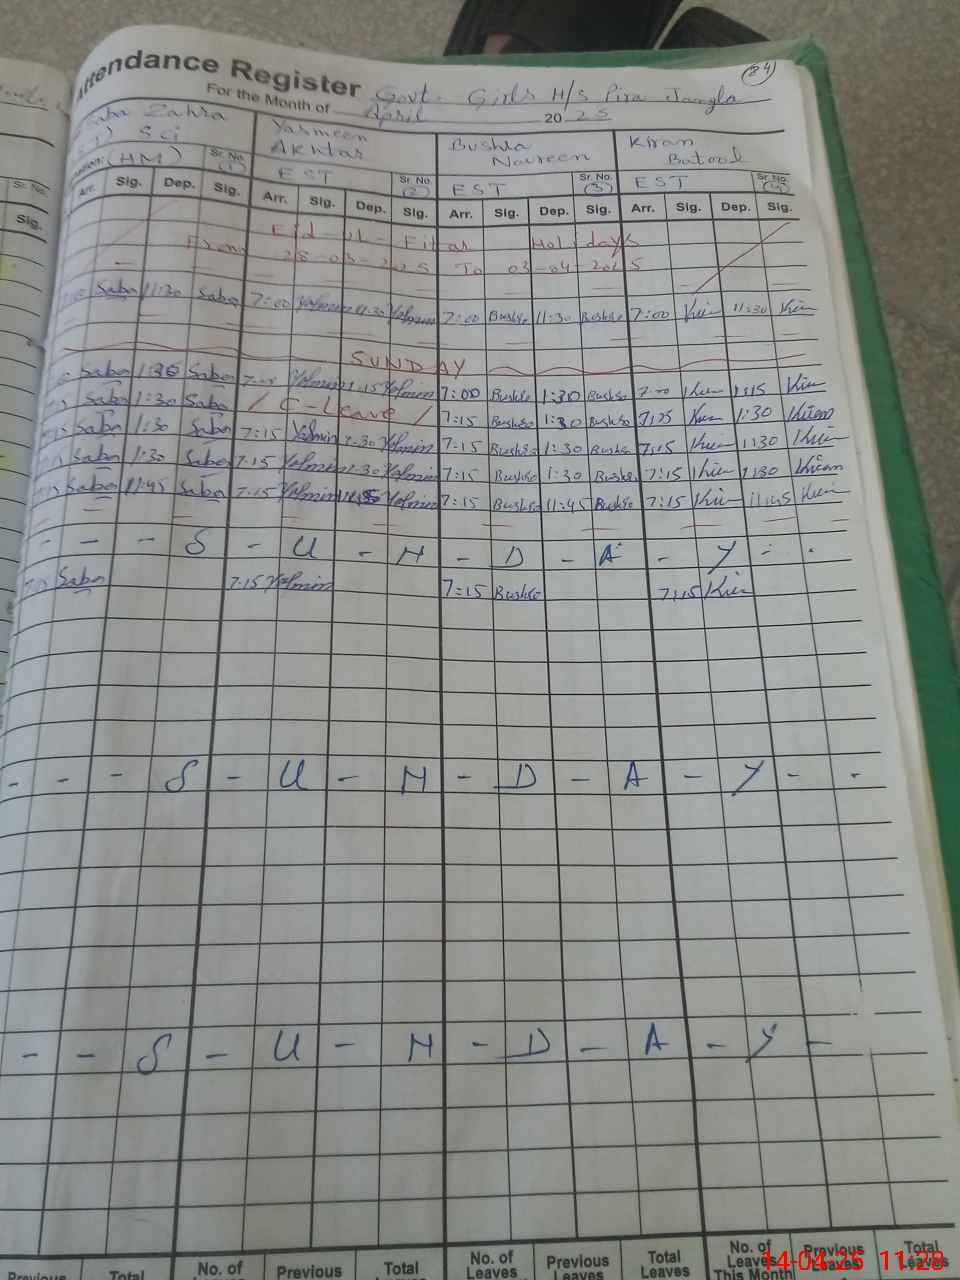 Attendance Register Govt. Girls H/S Pira Jangla
24
For the Month of April 20 25
Zahra Yasmeen Akhtar Bushra Navreen Kiran Batool
Sci
(HM) Sr. No. (1) EST Sr. No. (2) EST Sr. No. (3) EST Sr. No. (4)
Arr. Sig. Dep. Sig. Arr. Sig. Dep. Sig. Arr. Sig. Dep. Sig. Arr. Sig. Dep. Sig.
Eid-Ul-Fitar Holidays
From 28-03-2025 To 03-04-2025
Saba 11:30 Saba 7:00 Yasmin 11:30 Yasmin 7:00 Bushra 11:30 Bushra 7:00 Kiran 11:30 Kiran
SUNDAY
Saba 1:30 Saba 7:00 Yasmin 1:15 Yasmin 7:00 Bushra 1:30 Bushra 7:00 Kiran 1:15 Kiran
Saba 1:30 Saba / C-Leave / 7:15 Bushra 1:30 Bushra 7:15 Kiran 1:30 Kiran
Saba 1:30 Saba 7:15 Yasmin 1:30 Yasmin 7:15 Bushra 1:30 Bushra 7:15 Kiran 1:30 Kiran
Saba 1:30 Saba 7:15 Yasmin 1:30 Yasmin 7:15 Bushra 1:30 Bushra 7:15 Kiran 1:30 Kiran
Saba 11:45 Saba 7:15 Yasmin 11:45 Yasmin 7:15 Bushra 11:45 Bushra 7:15 Kiran 11:45 Kiran
- - - S - U - N - D - A - Y - -
Saba 7:15 Yasmin 7:15 Bushra 7:15 Kiran
- - - S - U - N - D - A - Y - -
- - S - U - N - D - A - Y -
Previous Total No. of Leaves Previous Total No. of Leaves Previous Leaves Total Leaves No. of Leaves This Month Previous Leaves Total Leaves
14-04-25 11:28